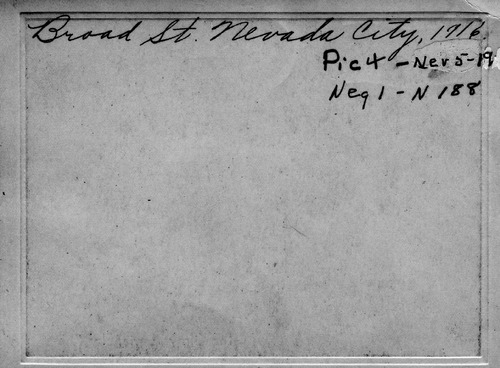 Broad St. Nevada City, 1916
Pic 4 - Nev 5-19
Neg 1 - N 188